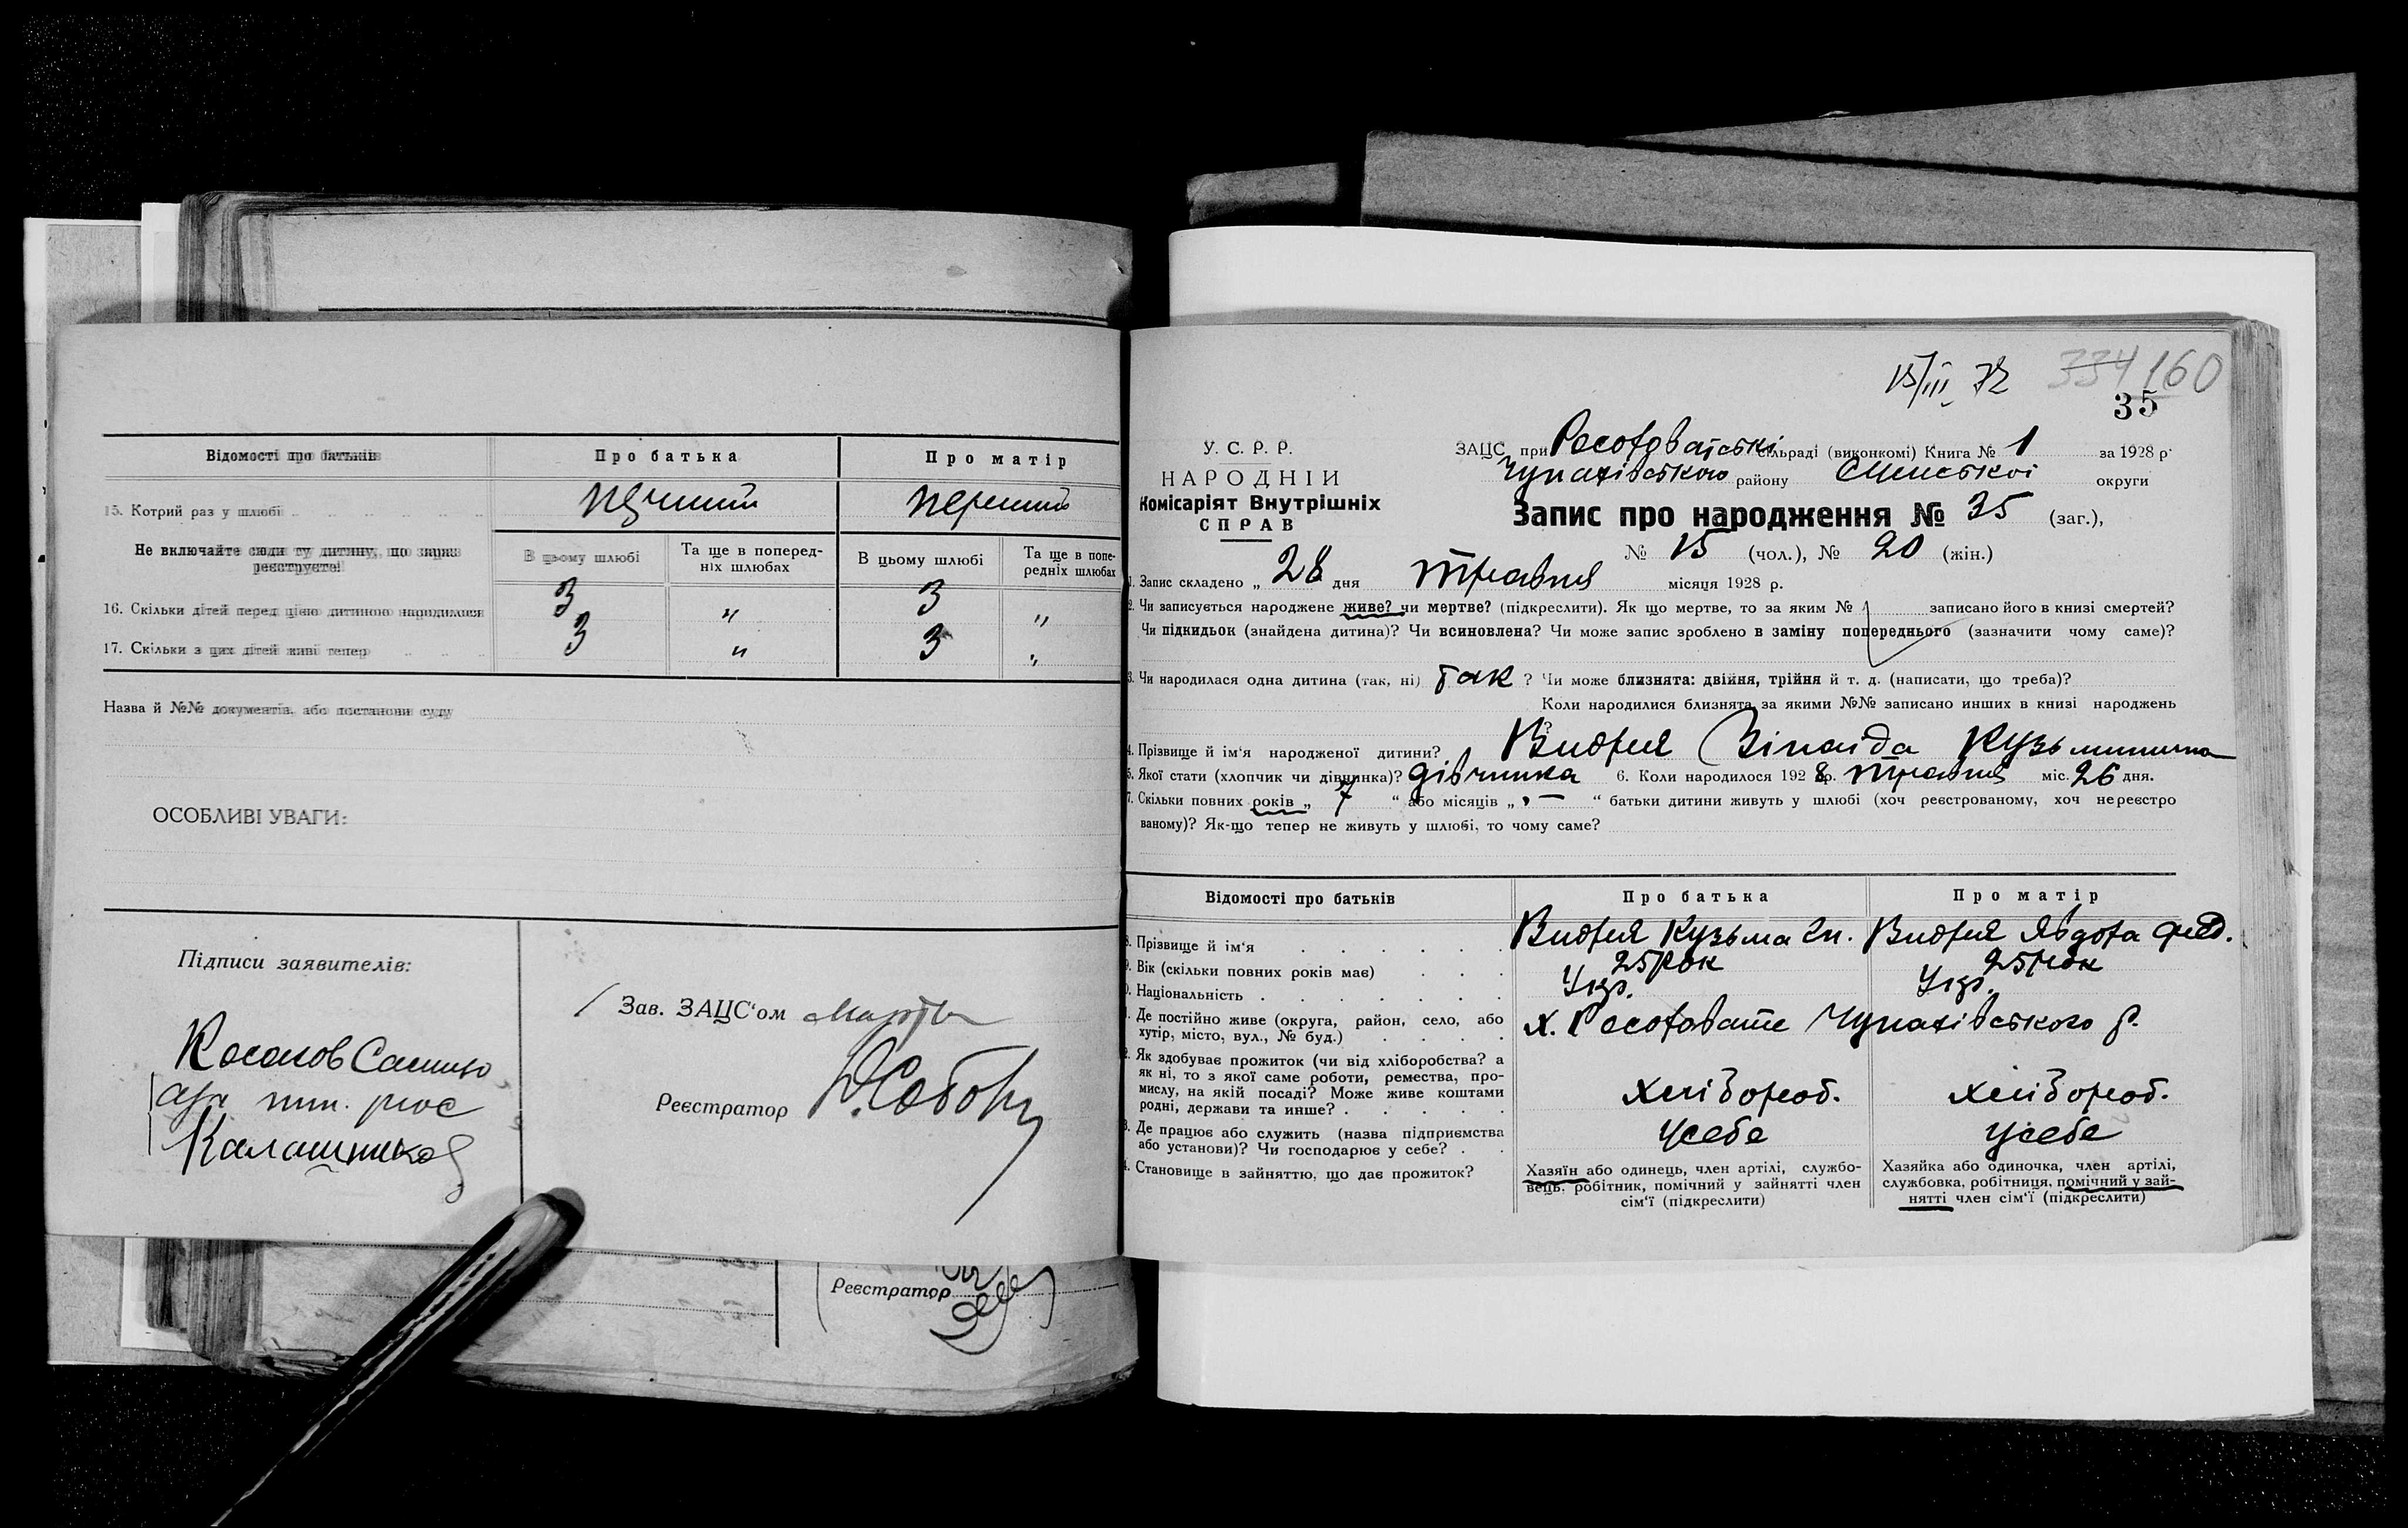 Відомості про батьків Про батька Про матір
15. Котрий раз у шлюбі перший
Не включайте сюди ту дитину, що зараз реєструєте! В цьому шлюбі Та ще в поперед- В цьому шлюбі Та ще в попе-
ніх шлюбах редніх шлюбах
16. Скільки дітей перед цією дитиною народилися 3 " 3 "
17. Скільки з цих дітей живі тепер 3 " 3 "
Назва й №№ документів, або постанови суду
ОСОБЛИВІ УВАГИ:
Підписи заявителів:
Зав. ЗАЦС'ом
Реєстратор
Калашников
Реєстратор
15/III 72 334 160
35
У. С. Р. Р.
НАРОДНІЙ
Комісаріят Внутрішніх
СПРАВ
ЗАЦС при сільраді (виконкомі) Книга № 1 за 1928 р.
Чупахівського району Сумської округи
Запис про народження № 35 (заг.),
№ 15 (чол.), № 20 (жін.)
1. Запис складено „ 28 дня травня місяця 1928 р.
2. Чи записується народжене живе? чи мертве? (підкреслити). Як що мертве, то за яким № записано його в книзі смертей?
Чи підкидьок (знайдена дитина)? Чи всиновлена? Чи може запис зроблено в заміну попереднього (зазначити чому саме)?
3. Чи народилася одна дитина (так, ні) так ? Чи може близнята: двійня, трійня й т. д. (написати, що треба)?
Коли народилися близнята, за якими №№ записано инших в книзі народжень
?
4. Прізвище й ім'я народженої дитини? Зінаїда
5. Якої стати (хлопчик чи дівчинка)? дівчинка 6. Коли народилося 1928 р. травня міс. 26 дня.
7. Скільки повних років „ 7 “ або місяців „ — “ батьки дитини живуть у шлюбі (хоч реєстрованому, хоч нереєстро
ваному)? Як-що тепер не живуть у шлюбі, то чому саме?
Відомості про батьків Про батька Про матір
8. Прізвище й ім'я Кузьма Явдоха
9. Вік (скільки повних років має) 25 рок 25 рок
10. Національність Укр. Укр.
11. Де постійно живе (округа, район, село, або
хутір, місто, вул., № буд.) х. Чупахівського р.
12. Як здобуває прожиток (чи від хліборобства? а
як ні, то з якої саме роботи, ремества, про-
мислу, на якій посаді? Може живе коштами
родні, держави та инше? хлібороб. хлібороб.
13. Де працює або служить (назва підприємства
або установи)? Чи господарює у себе? у себе у себе
14. Становище в зайняттю, що дає прожиток?
Хазяїн або одинець, член артілі, службо-
вець, робітник, помічний у зайнятті член
сім'ї (підкреслити)
Хазяйка або одиночка, член артілі,
службовка, робітниця, помічний у зай-
нятті член сім'ї (підкреслити)